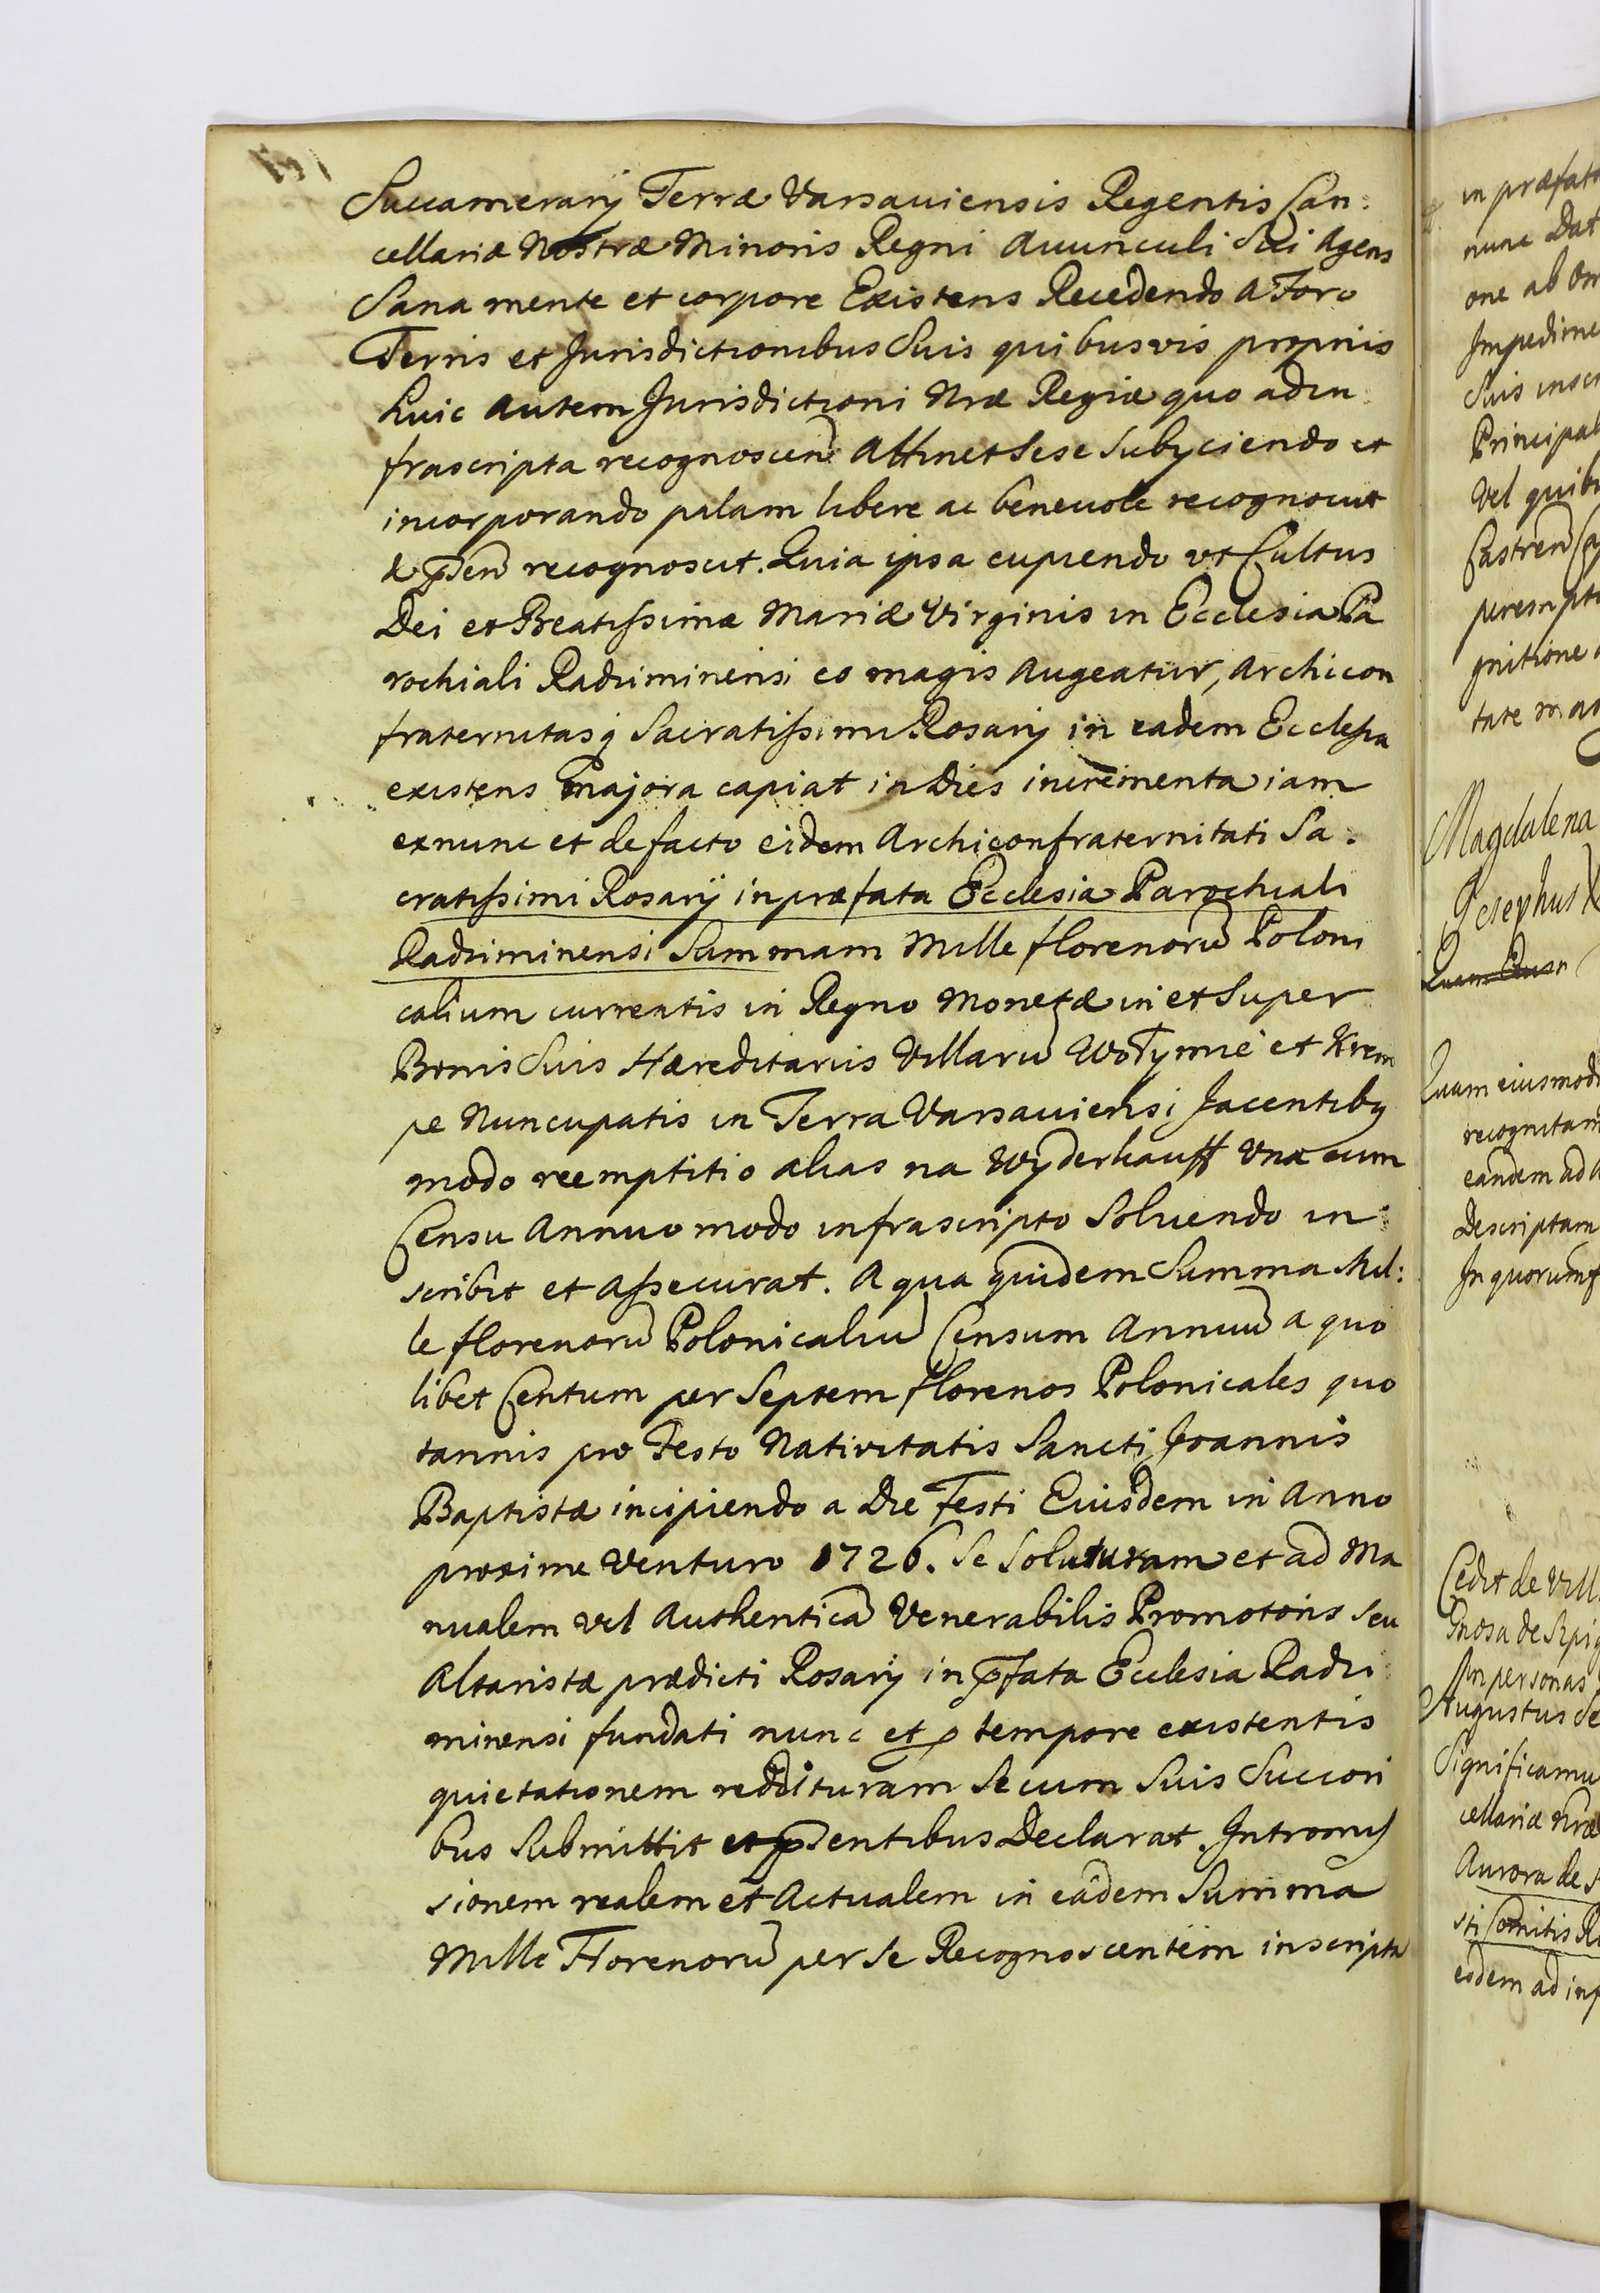 Succamerarij Terræ Varsauiensis Regentis Can:
cellariæ Nostræ Minoris Regni Auunculi Sui Agens
Sana mente et corpore Existens Recedendo a Foro
Terris et Jurisdictionibus Suis quibusvis proprijs
huic autem Jurisdictioni Nræ Regiæ quo ad in
frascripta recognoscen̄ Attinet Sese Subijciendo et
incorporando palam libere ac beneuole recognouit
& p̄sen̄ recognoscit. Quia ipsa cupiendo vt Cultus
Dei et Beatissimæ Mariæ Virginis in Ecclesia Pa
rochiali Radziminensi eo magis augeatur, Archicon
fraternitasq Sacratissimi Rosarij in eadem Ecclesia
existens Majora capiat in Dies incrementa iam
exnunc et de facto eidem Archiconfraternitati Sa:
cratissimi Rosarij in præfata Ecclesia Parochiali
Radziminensi Summam Mille florenorū Poloni
calium currentis in Regno Monetæ in et Super
Bonis Suis Hæreditarijs Villarū Wotymie et Krem
pe Nuncupatis in Terra Varsauiensi Jacentibq
modo reemptitio alias na Wyderkauff Vna cum
Censu Annuo modo infrascripto Soluendo in:
scribit et assecurat. A qua quidem Summa Mil:
le florenorū Polonicaliū Censum Annuū a quo
libet Centum per Septem florenos Polonicales quo
tannis pro Festo Natiuitatis Sancti Joannis
Baptistæ incipiendo a Die Festi Eiusdem in Anno
proxime Venturo 1726. Se Soluturam et ad Ma
nualem vel Authenticā Venerabilis Promotoris seu
Altaristæ prædicti Rosarij in p̄fata Ecclesia Radzi
minensi fundati nunc et p tempore existentis
quietationem reddituram Secum Suis Succori
bus Submittit et p̄sentibus Declarat. Intromis
sionem realem et Actualem in eâdem Summa
Mille Florenorū per Se Recognoscentem inscripta
in præfata
nunc Dat
one ab om
Impedime
Suis inscr
Principal
Vel quib
Castren̄ Ca
perempto
gnitione
tate mag
Magdalena
Josephus
Quam
Quam eiusmodi
recognitam
eandem ad
Descriptam
In quorum f
Cedit de Vill
In personas
Augustus Se
Significamu
cellariæ Nræ
Aurora de
sti Comitis
eodem ad inf